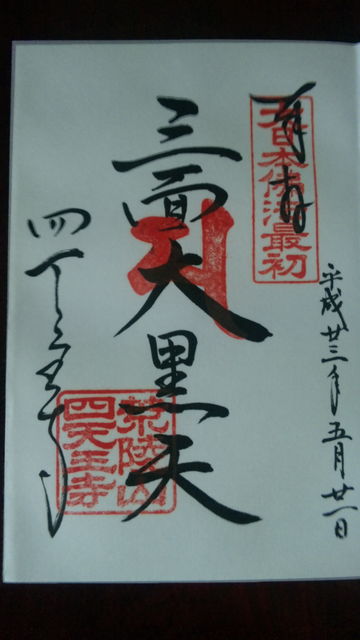 奉拝
大日本佛法最初
平成廿三年五月廿一日
三面大黒天
四天王寺
荒陵山
四天王寺